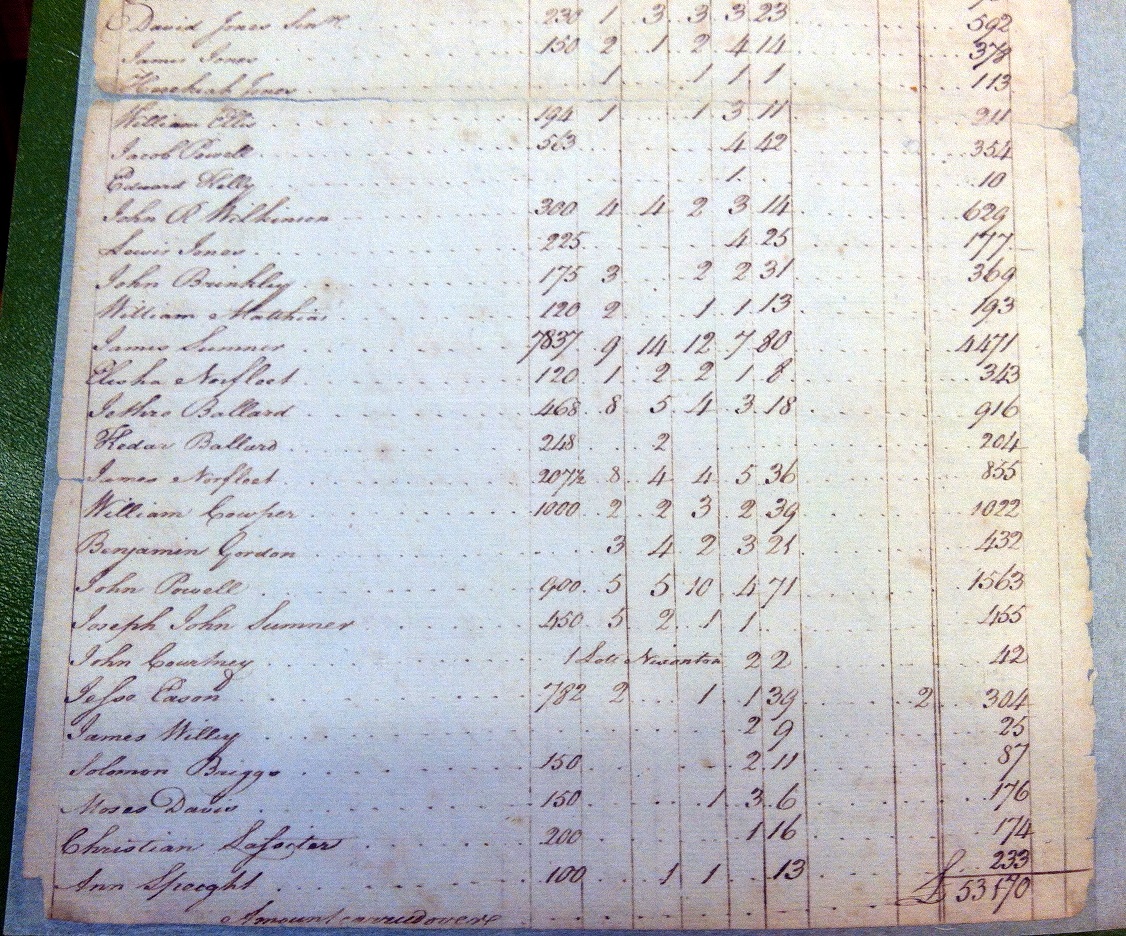 David Jones 230 1 3 3 3 23 592
James Jones 150 2 1 2 4 14 378
Hezekiah Jones 1 1 1 1 113
William Ellis 194 1 1 3 11 211
Jacob Powell 563 4 42 354
Edward Kelly 1 10
John A Wilkinson 300 4 4 2 3 14 629
Lewis Jones 225 4 25 177
John Brinkley 175 3 2 2 31 369
William Matthias 120 2 1 1 13 193
James Sumner 7837 9 14 12 7 80 4471
Elisha Norfleet 120 1 2 2 1 8 343
Jethro Ballard 468 8 5 4 3 18 916
Kedar Ballard 248 2 204
James Norfleet 207½ 8 4 4 5 36 855
William Cowper 1000 2 2 3 2 39 1022
Benjamin Gordon 3 4 2 3 21 432
John Powell 900 5 5 10 4 71 1563
Joseph John Sumner 450 5 2 1 1 455
John Courtney 1 Lott Nixonton 2 2 42
Jesse Eason 782 2 1 1 39 2 304
James Willey 2 9 25
Solomon Briggs 150 2 11 87
Moses Davis 150 1 3 6 176
Christian Lassiter 200 1 16 174
Ann Speight 100 1 1 13 233
Amount carried over £ 53170